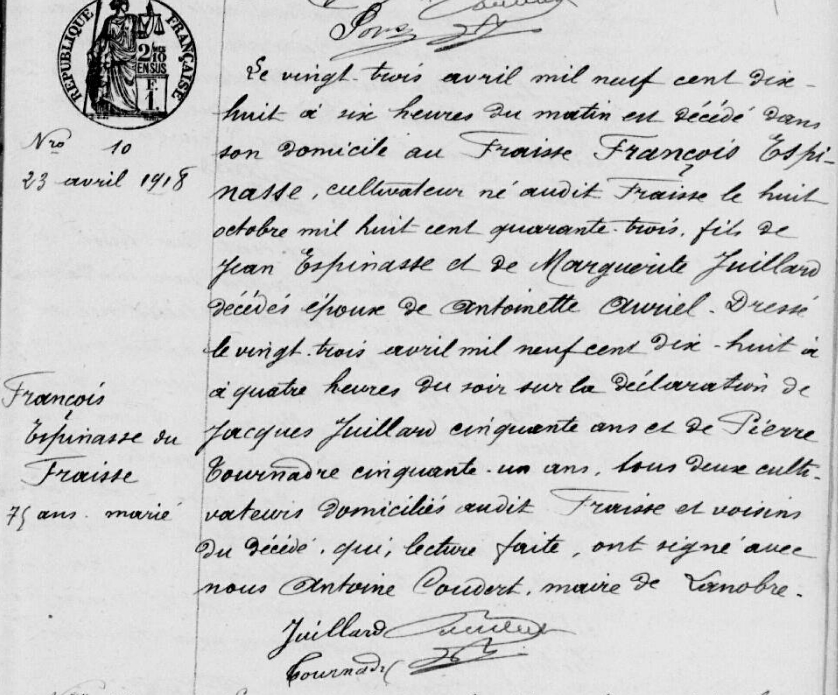 RÉPUBLIQUE FRANÇAISE
Nro 10
23 avril 1918
François
Espinasse du
Fraisse
75 ans. marié
Le vingt-trois avril mil neuf cent dix-
huit à six heures du matin est décédé dans
son domicile au Fraisse François Espi-
nasse, cultivateur né audit Fraisse le huit
octobre mil huit cent quarante-trois, fils de
Jean Espinasse et de Marguerite Juillard
décédés époux de Antoinette Auriel. Dressé
le vingt-trois avril mil neuf cent dix-huit à
à quatre heures du soir sur la déclaration de
Jacques Juillard cinquante ans et de Pierre
Tournadre cinquante-un ans, tous deux culti-
vateurs domiciliés audit Fraisse et voisins
du décédé, qui, lecture faite, ont signé avec
nous Antoine Coudert, maire de Lanobre.
Juillard
Tournadre